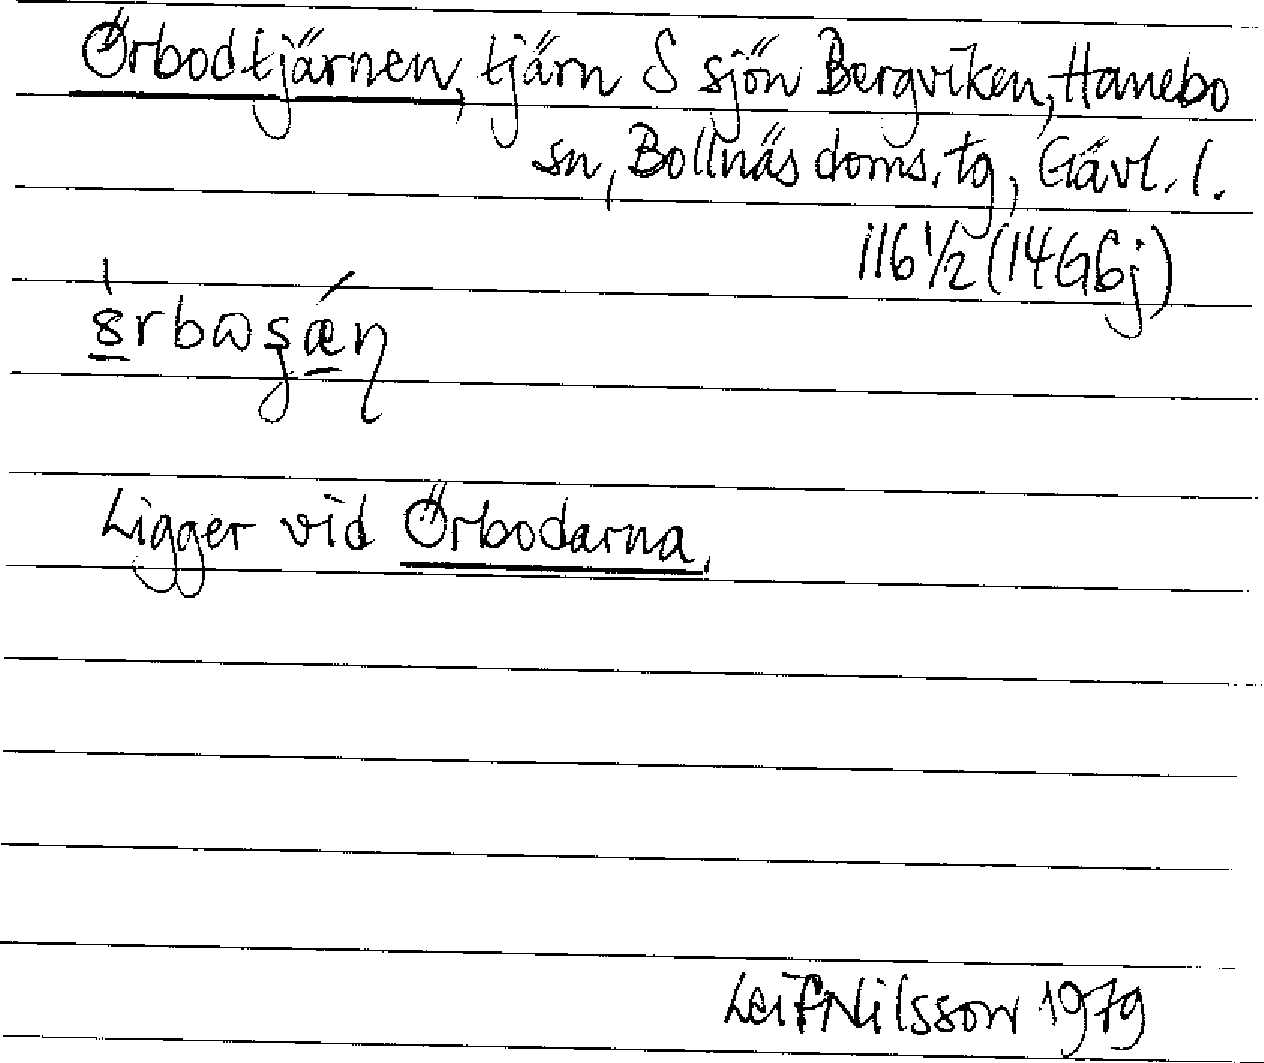 Örbodtjärnen, tjärn S sjön Bergviken, Hanebo
sn, Bollnäs doms. tg, Gävl. l.
116 1/2 (14G6j)
Ligger vid Örbodarna.
Leif Nilsson 1979